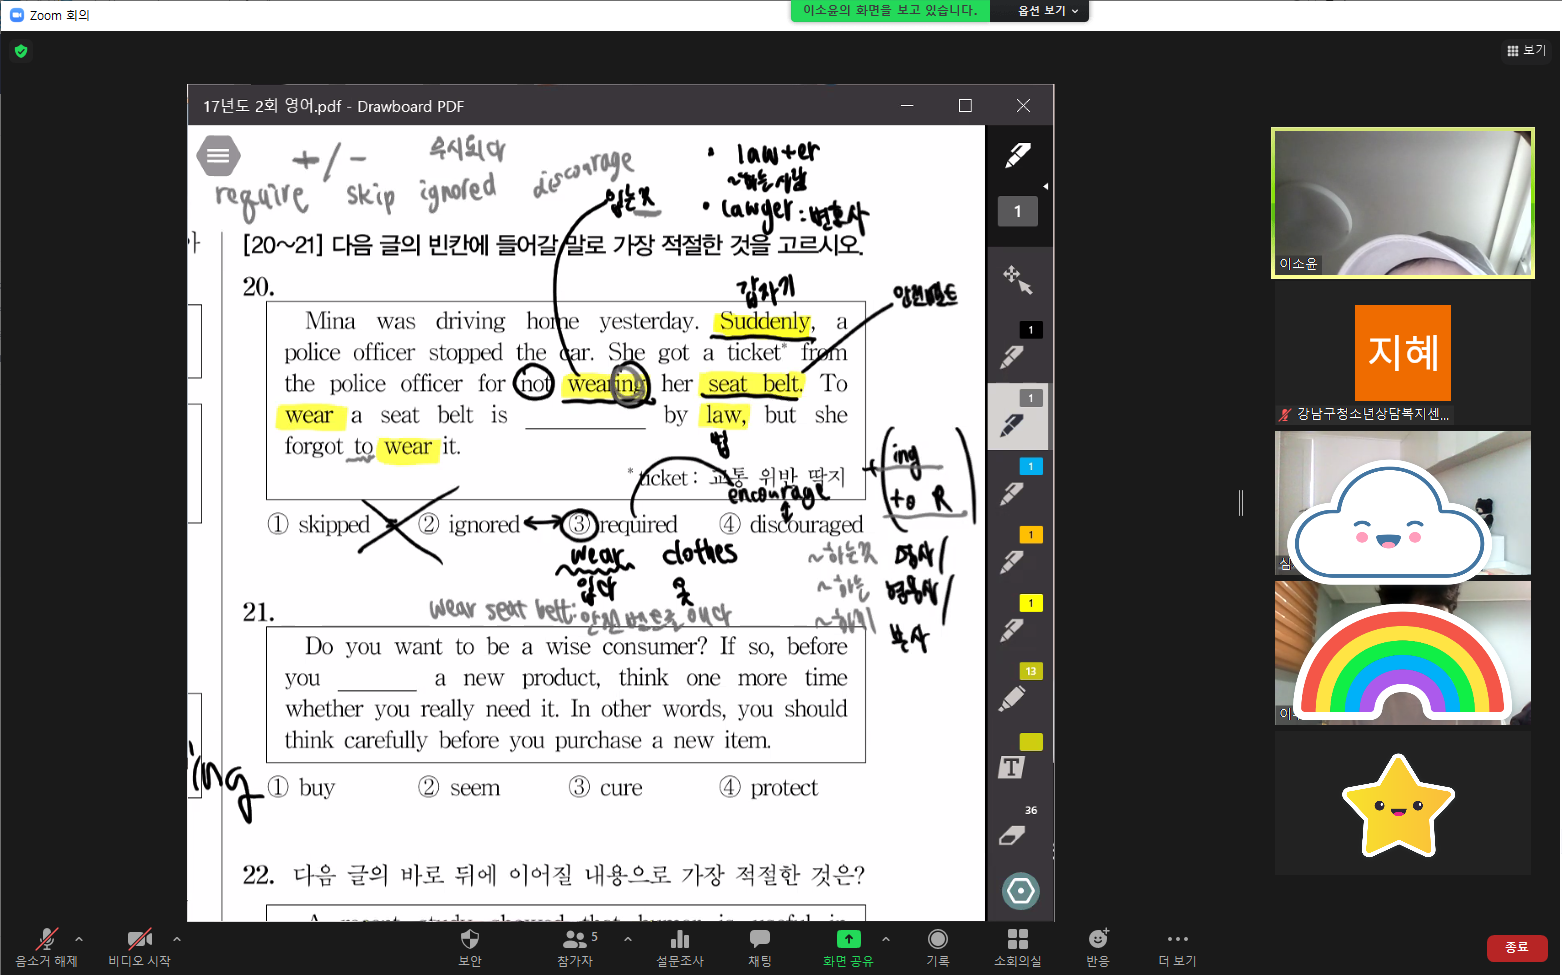 Zoom 회의
이소윤의 화면을 보고 있습니다.
옵션 보기
보기
17년도 2회 영어.pdf - Drawboard PDF
+/- 주시되다
require skip ignored discourage
입는 것
• law+er
~하는 사람
• lawyer : 변호사
[20~21] 다음 글의 빈칸에 들어갈 말로 가장 적절한 것을 고르시오.
20.
갑자기
안전벨트
Mina was driving home yesterday. Suddenly, a
police officer stopped the car. She got a ticket* from
the police officer for not wearing her seat belt. To
wear a seat belt is ________ by law, but she
forgot to wear it.
법
* ticket : 교통 위반 딱지
encourage
+ ( ing
to R )
① skipped ② ignored ③ required ④ discouraged
wear clothes
입다 옷
~하는것 명사/
~하는 형용사/
~하기 부사
wear seat belt: 안전벨트를 매다
21.
Do you want to be a wise consumer? If so, before
you ______ a new product, think one more time
whether you really need it. In other words, you should
think carefully before you purchase a new item.
ing
① buy ② seem ③ cure ④ protect
22. 다음 글의 바로 뒤에 이어질 내용으로 가장 적절한 것은?
A recent study showed that humor is useful in
1
1
1
1
1
1
13
T
36
이소윤
지혜
강남구청소년상담복지센...
음소거 해제
비디오 시작
보안
참가자 5
설문조사
채팅
화면 공유
기록
소회의실
반응
더 보기
종료